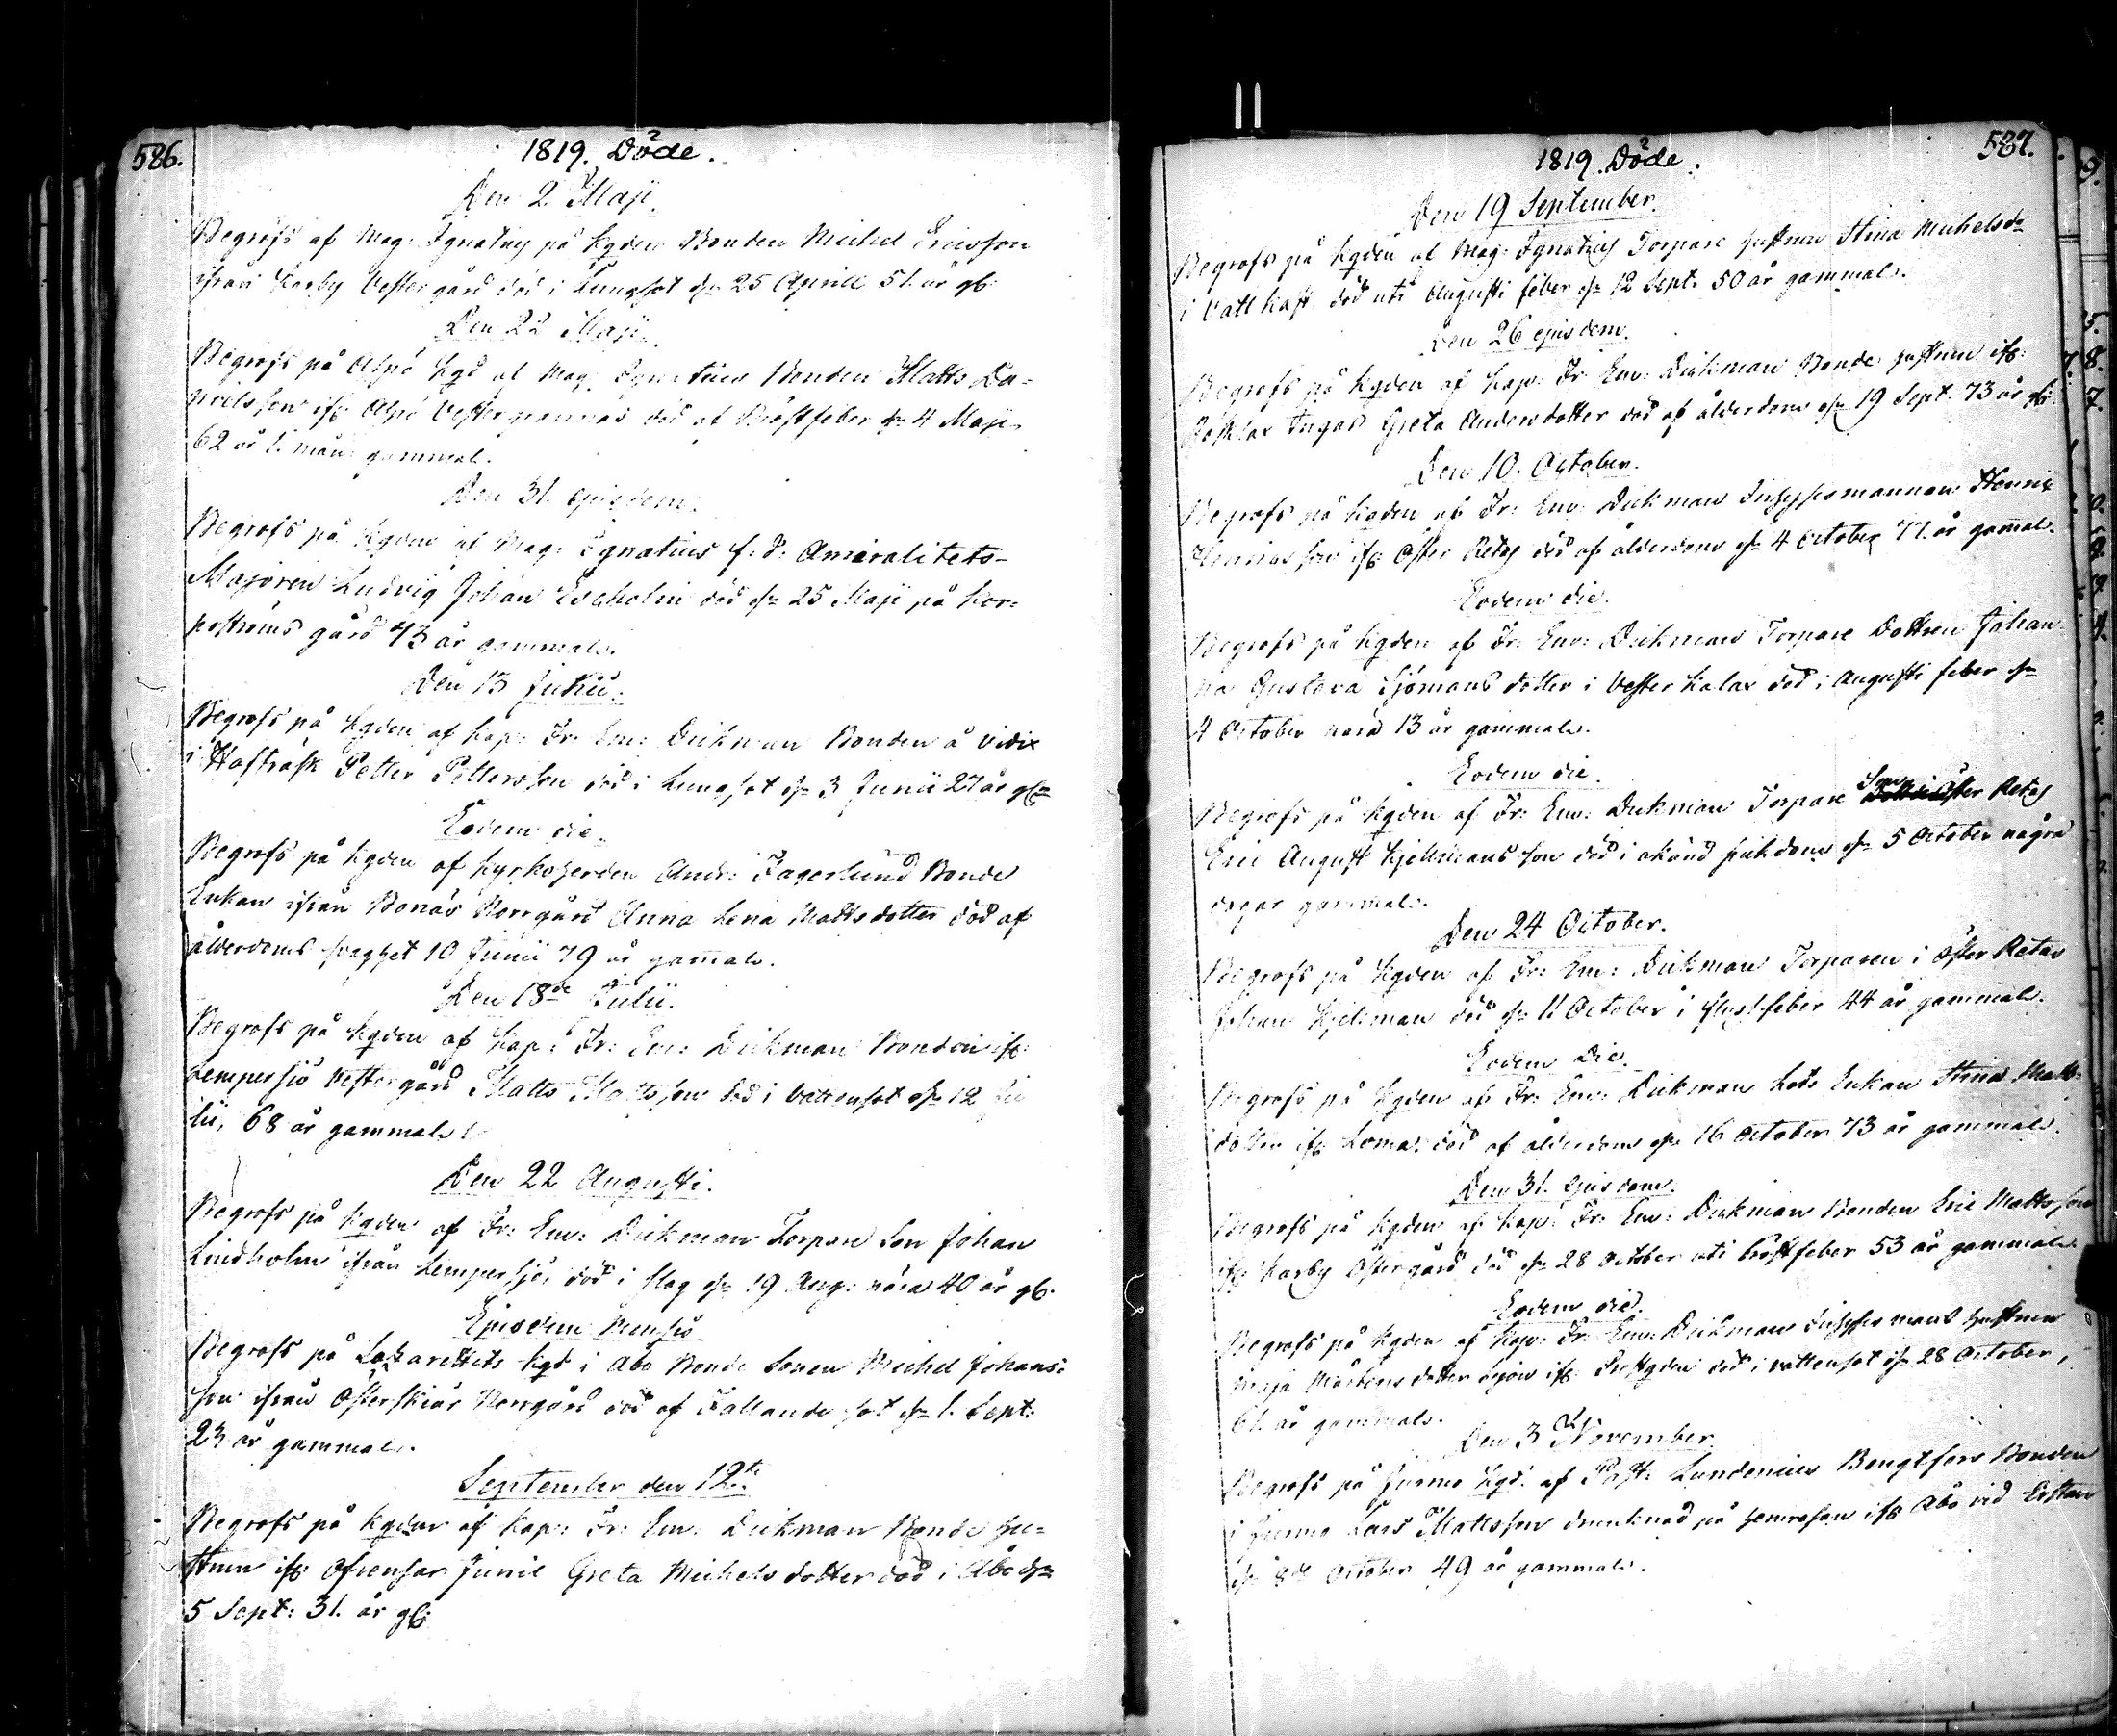 586.
1819. Döde.
Den 2. Maji.
Begrofs af Mag: Ignatius på Kgden Bonden Michel Ericsson
ifrån Karby Vestergård död i Lungsot d. 25 Aprill 51. år gl:
Den 22 Maji.
Begrofs på Kgd af Mag: Ignatius Bonden Matts Da-
nielsson ifr: Vestergannas död af Bröstfeber d. 4 Maji
62 år 1. mån: gammal.
Den 31. ejusdem.
Begrofs på Kgden af Mag: Ignatius f.d. Amiralitets-
Majoren Ludvig Johan Escholin död d. 25 Maji på Kor-
pströms gård 73 år gammal.
Den 13 Junii.
Begrofs på Kgden af Kap: Fr: Em: Dickman Bonden å Vidix
i Hafträsk Petter Pettersson död i Lungsot d. 3 Junii 27 år gl:
Eodem die.
Begrofs på Kgden af Kyrkoherden Andr: Fagerlund Bonde
Enkan ifrån Bonäs Norrgård Anna Lena Mattsdotter död af
ålderdoms svaghet 10 Junii 79 år gammal.
Den 18de Julii.
Begrofs på Kgden af Kap: Fr: Em: Dickman Bonden ifr:
Lempersjö Vestergård Matts Mattsson död i Vattusot d. 12 Ju
lii, 68 år gammal.
Den 22 Augusti.
Begrofs på Kgden af Fr: Em: Dickman Torpare Son Johan
Lindholm ifrån Lempersjö, död i slag d. 19 Aug: nära 40 år gl.
Ejusdem Mensis
Begrofs på Lazarettets Kgd i Åbo Bonde Sonen Michel Johans-
son ifrån Österskiär Norrgård död af Fallande sot d. 1. Sept:
23 år gammal.
September den 12te
Begrofs på Kgden af Kap: Fr: Em: Dickman Bonde hu-
strun ifr: Ofvensor Junis Greta Michelsdotter död i Åbo d.
5 Sept: 31. år gl:
587.
1819. Döde.
Den 19 September.
Begrofs på Kgden af Mag: Ignatius Torpare hustrun Stina Michelsdr
i Vattkast död uti Augusti feber d. 12 Sept: 50 år gammal.
Den 26 ejusdem.
Begrofs på Kgden af Kap: Fr: Em: Dickman Bonde hustrun ifr:
Rosklax Ingas Greta Andersdotter död af ålderdom d. 19 Sept. 73 år gl:
Den 10. October.
Begrofs på Kgden af Fr: Em: Dickman Inhysesmannen Henric
Henricsson ifr: Öster Retais död af ålderdom d. 4 October 71. år gammal.
Eodem die.
Begrofs på Kgden af Fr: Em: Dickman Torpare Dottren Johan
na Gustava Sjömans dotter i Vester Kalax död i Augusti feber d.
4 October nära 13 år gammal.
Eodem die.
Begrofs på Kgden af Fr: Em: Dickman Torpare Son Öster Retais
Eric August Kjellmans son död i okänd sjukdom d. 5 October några
dagar gammal.
Den 24 October.
Begrofs på Kgden af Fr: Em: Dickman Torparen i Öster Retais
Johan Kjellman död d. 11 October i feber 44 år gammal.
Eodem die.
Begrofs på Kgden af Fr: Em: Dickman Lots Enkan Stina Matts-
dotter ifr: Loma död af ålderdom d. 16 October 73 år gammal.
Den 31. ejusdem.
Begrofs på Kgden af Kap: Fr: Em: Dickman Bonden Eric Mattsson
ifr: Karby Östergård död d. 28 October uti Bröstfeber 53 år gammal.
Eodem die.
Begrofs på Kgden af Kap: Fr: Em: Dickman Inhyses mans hustrun
Maja Mårtensdotter ifr: död i vattusot d. 28 October,
61. år gammal.
Den 3 November
Begrofs på Jurmo Kgd. af Past: Lundenius Bengtsers Bonden
i Jurmo Lars Mattsson drunknad på hemresan ifr: Åbo vid Erstan
d. 8de October 49 år gammal.